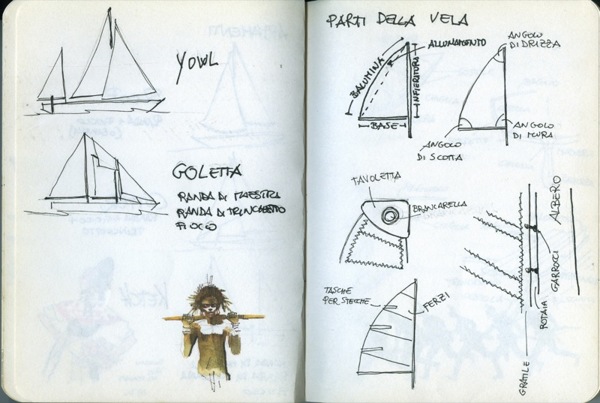 YOWL
GOLETTA
RANDA DI MAESTRA
RANDA DI TRINCHETTO
FIOCCO
PARTI DELLA VELA
BALUMINA
ALLUNAMENTO
INFIERITURA
BASE
ANGOLO
DI DRIZZA
ANGOLO
DI MURA
ANGOLO
DI SCOTTA
TAVOLETTA
BRANCARELLA
TASCHE
PER STECCHE
FERZI
GRATILE
ROTAIA
GARROCCI
ALBERO